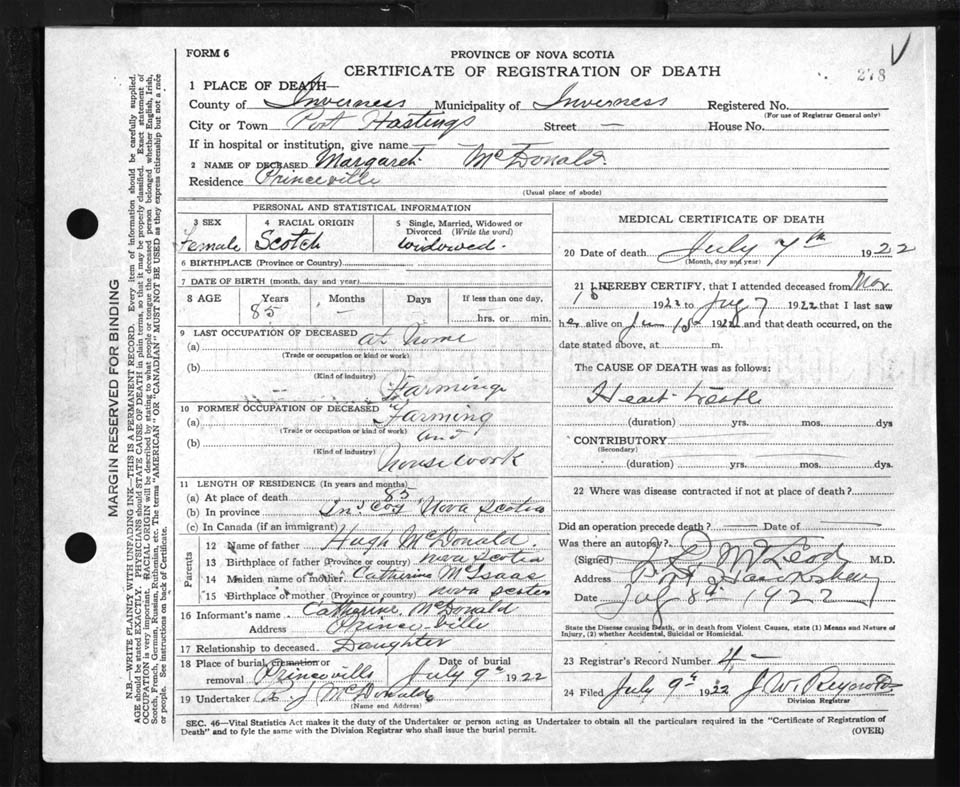 FORM 6
PROVINCE OF NOVA SCOTIA
CERTIFICATE OF REGISTRATION OF DEATH
278
1 PLACE OF DEATH—
County of Inverness Municipality of Inverness Registered No.
(For use of Registrar General only)
City or Town Port Hastings Street — House No.
If in hospital or institution, give name
2 NAME OF DECEASED Margaret McDonald
Residence Princeville
(Usual place of abode)
PERSONAL AND STATISTICAL INFORMATION
3 SEX 4 RACIAL ORIGIN 5 Single, Married, Widowed or Divorced (Write the word)
Female Scotch widowed.
6 BIRTHPLACE (Province or Country)
7 DATE OF BIRTH (month, day and year)
8 AGE Years Months Days If less than one day,
85 — hrs. or min.
9 LAST OCCUPATION OF DECEASED at home
(a)
(Trade or occupation or kind of work)
(b)
(Kind of industry)
Farming
10 FORMER OCCUPATION OF DECEASED Farming
(a)
(Trade or occupation or kind of work) and
(b)
(Kind of industry) Housework
11 LENGTH OF RESIDENCE (In years and months)
(a) At place of death 85
(b) In province Nova Scotia
(c) In Canada (if an immigrant)
Parents
12 Name of father Hugh McDonald.
13 Birthplace of father (Province or country) Nova Scotia
14 Maiden name of mother Catherine McIsaac
15 Birthplace of mother (Province or country) Nova Scotia
16 Informant's name Catherine McDonald
Address Princeville
17 Relationship to deceased Daughter
18 Place of burial, cremation or removal Princeville Date of burial July 9th 1922
19 Undertaker J McDonald
(Name and Address)
MEDICAL CERTIFICATE OF DEATH
20 Date of death July 7th 1922
(Month, day and year)
21 I HEREBY CERTIFY, that I attended deceased from
1922 to July 7 1922 that I last saw
her alive on 1922 and that death occurred, on the
date stated above, at m.
The CAUSE OF DEATH was as follows:
Heart
(duration) yrs. mos. dys
CONTRIBUTORY
(Secondary)
(duration) yrs. mos. dys.
22 Where was disease contracted if not at place of death?
Did an operation precede death? — Date of —
Was there an autopsy?
(Signed) McLeod M.D.
Address Port Hawkesbury
Date July 8th 1922
State the Disease causing Death, or in death from Violent Causes, state (1) Means and Nature of
Injury, (2) whether Accidental, Suicidal or Homicidal.
23 Registrar's Record Number 4
24 Filed July 9th 1922 J. W. Reynolds
Division Registrar
SEC. 46—Vital Statistics Act makes it the duty of the Undertaker or person acting as Undertaker to obtain all the particulars required in the "Certificate of Registration of
Death" and to fyle the same with the Division Registrar who shall issue the burial permit.
(OVER)
MARGIN RESERVED FOR BINDING
N.B.—WRITE PLAINLY WITH UNFADING INK—THIS IS A PERMANENT RECORD. Every item of information should be carefully supplied.
AGE should be stated EXACTLY. PHYSICIANS should STATE CAUSE OF DEATH in plain terms, so that it may be properly classified. Exact statement of
OCCUPATION is very important. RACIAL ORIGIN will be described by stating to what people or tongue the deceased person belonged whether English, Irish,
Scotch, French, German, Russian, Ruthenian, etc. The terms "AMERICAN" OR "CANADIAN" MUST NOT BE USED as they express citizenship but not a race
or people. See instructions on back of Certificate.